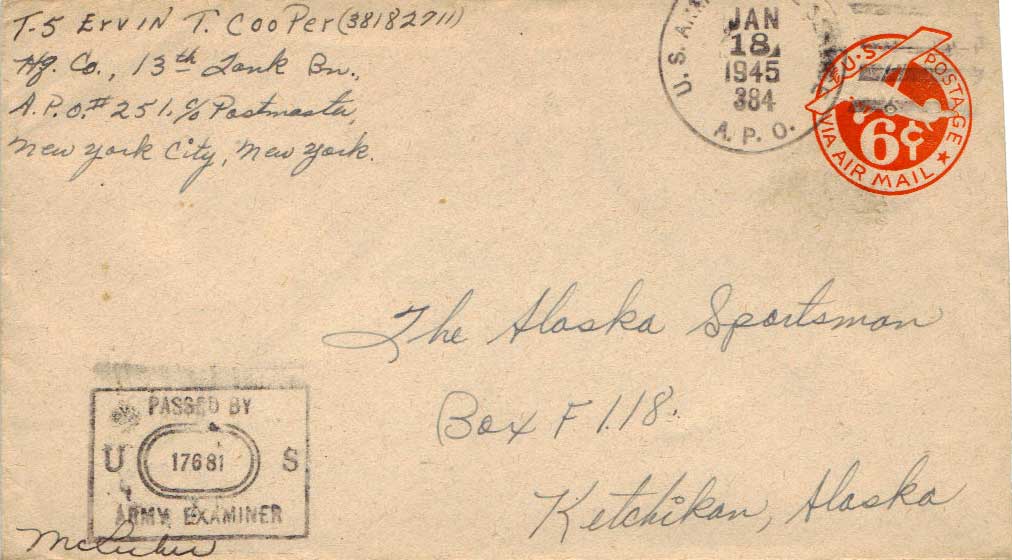 T-5 Ervin T. Cooper (38182711)
Hq. Co., 13th Tank Bn.,
A.P.O. # 251. c/o Postmaster,
New York City, New York.
U.S. ARMY
JAN
18
1945
384
A. P. O.
U.S. POSTAGE
6¢
VIA AIR MAIL
The Alaska Sportsman
Box F 118.
Ketchikan, Alaska
PASSED BY
U 17681 S
ARMY EXAMINER